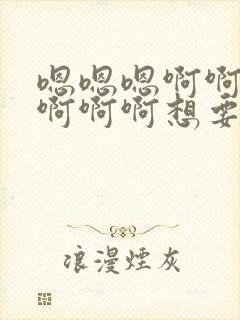 嗯嗯嗯啊啊
啊啊啊想要
浪漫煙灰